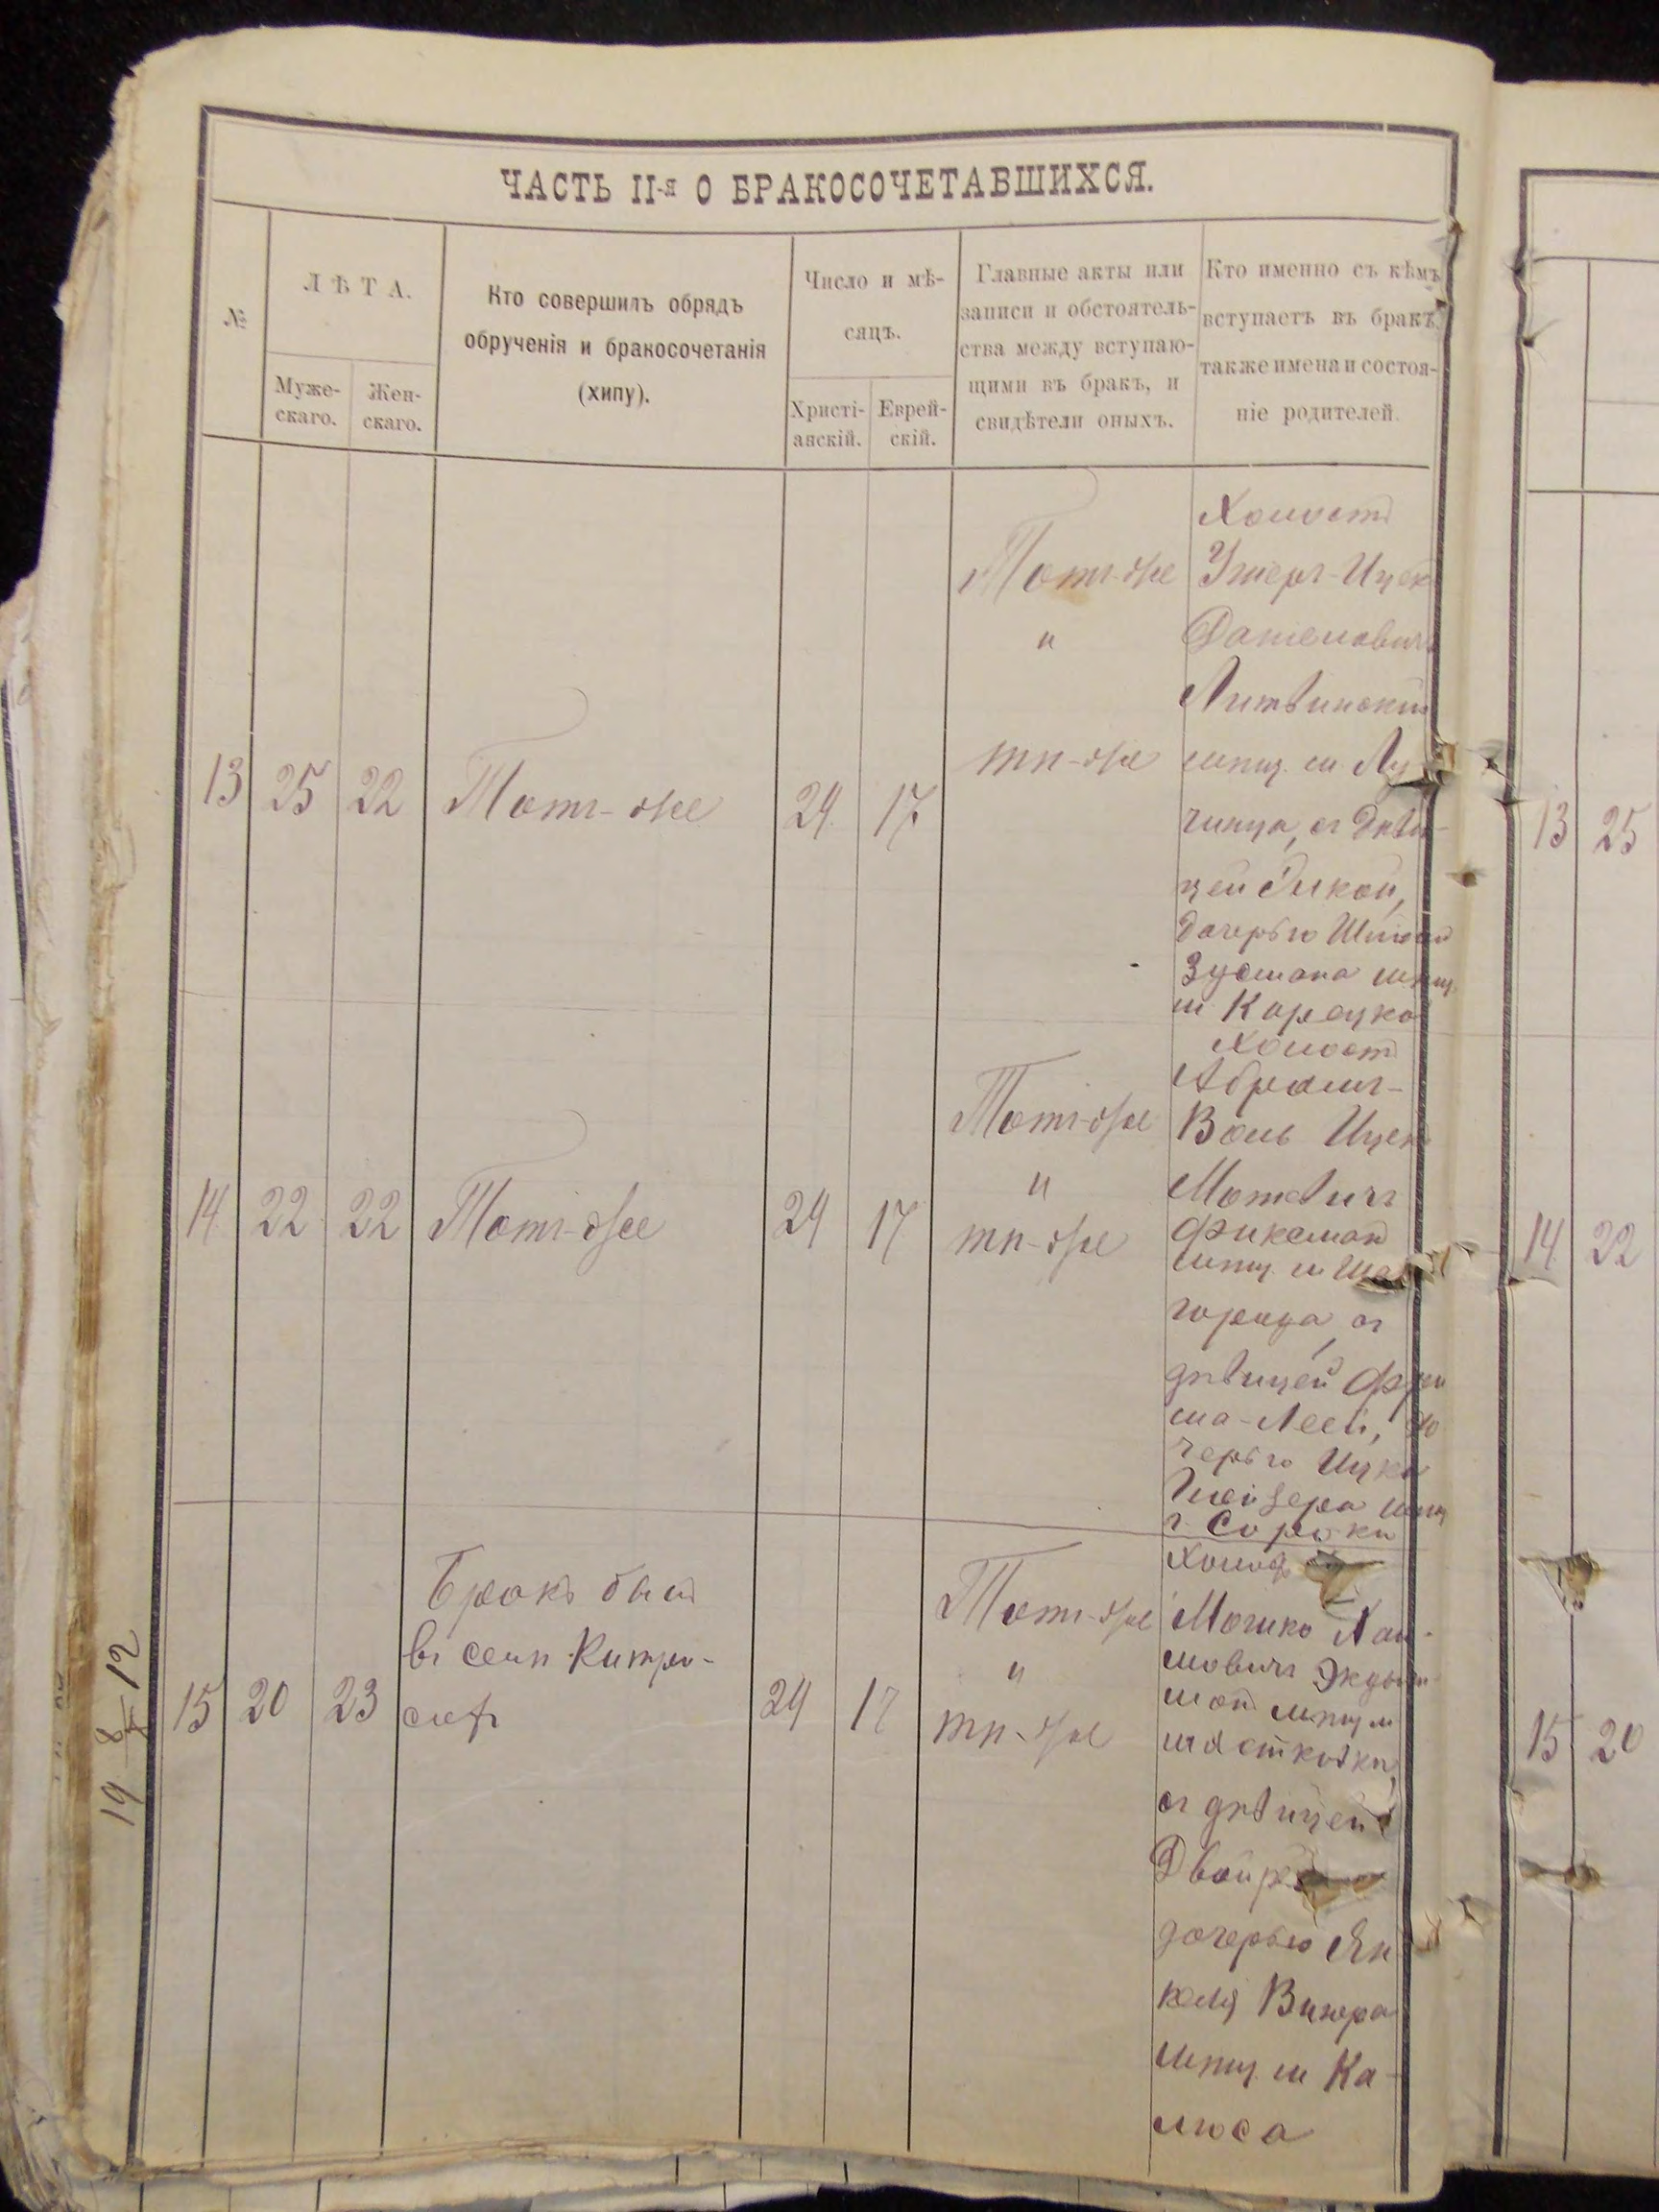 ЧАСТЬ II-я О БРАКОСОЧЕТАВШИХСЯ.
№
ЛѢТА.
Муже-
скаго.
Жен-
скаго.
Кто совершилъ обрядъ
обрученія и бракосочетанія
(хипу).
Число и мѣ-
сяцъ.
Христі-
анскій.
Еврей-
скій.
Главные акты или
записи и обстоятель-
ства между вступаю-
щими въ бракъ, и
свидѣтели оныхъ.
Кто именно съ кѣмъ
вступаетъ въ бракъ,
также имена и состоя-
ніе родителей.
13
25
22
Тотъ-же
24
17
Тотъ-же
"
тѣ-же
Холостъ
Ушеръ-Ицек
Даніеловичъ
Литвинскій
мѣщ. м Лу
чинца, съ дѣви-
цей
дочерью
Зусмана мѣщ.
м
Холостъ
14
22
22
Тотъ-же
24
17
Тотъ-же
"
тѣ-же
Абрамъ-
Волъ Ицек
Мотевичъ
Фиксман
мѣщ. м Шар
города, съ
дѣвицей Фрей
ма-Леей, до
черью Ицка
мѣщ
г. Сороки
15
20
23
Бракъ былъ
въ селѣ Китро-
24
17
Тотъ-же
"
тѣ-же
Мошко Хаи-
мовичъ
ман мѣщ м
мястковки,
съ дѣвицей
Двойрей
дочерью Ян
келя Винера
мѣщ. м Ка-
люса
19 8/X 12
13
25
14
22
15
20